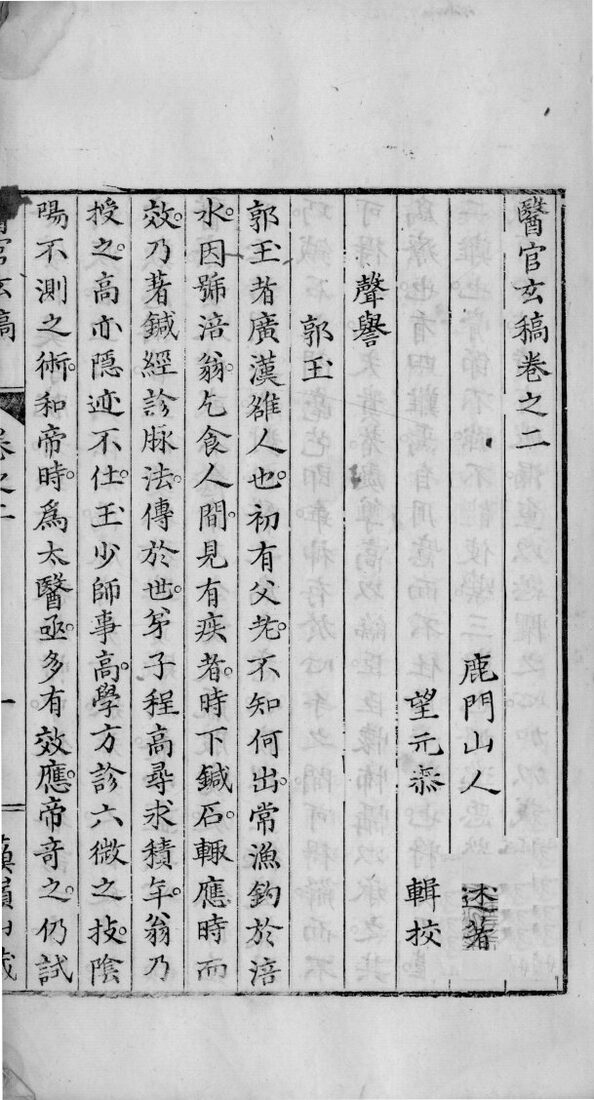 醫官玄稿卷之二
鹿門山人 述著
望元泰 輯挍
聲譽
郭玉
郭玉者廣漢雒人也。初有父老。不知何出。常漁釣於涪
水。因號涪翁。乞食人間。見有疾者。時下鍼石。輙應時而
效。乃著鍼經診脉法。傳於世。弟子程高尋求積年。翁乃
授之。高亦隱迹不仕。玉少師事高。學方診六微之技。陰
陽不測之術。和帝時。爲太醫丞。多有效應。帝竒之。仍試
醫官玄稿 卷之二 一